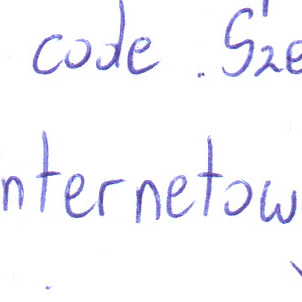 code . Sze
nternetow